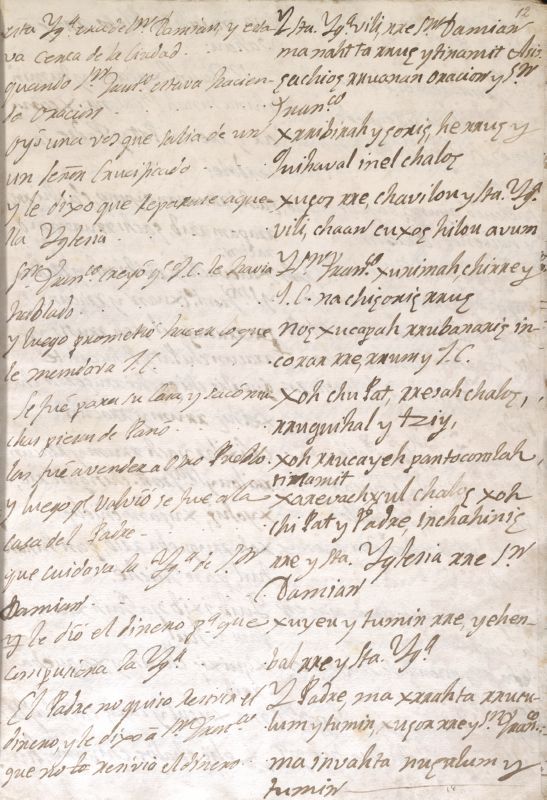 12
esta Ygª era de Sⁿ Damian, y esta-
va cerca de la Ciudad.
quando Sⁿ Franᶜᵒ estava hacien-
do oracion
oyó una vos que salia de un
un Señor Crucificado.
y le dixo que reparase aque-
lla Yglesia.
Sⁿ Franᶜᵒ creyó q̃ J.C. le havia
hablado.
y luego prometió hacer lo que
le mendava J.C.
Se fué para su Casa, y sacó mu-
chas piesas de Paño.
las fue a vender a otro Pueblo.
y luego q̃ volvio se fue a la
casa del Padre.
que cuidava la Ygª de Sⁿ
Damian
y le dió el dinero pª que
compusiera la Ygª
El Padre no quiso recivir el
dinero, y le dixo â Sⁿ Franᶜᵒ
que no le recivio el dinero.
Y Sta. Ygª vili, rre Sⁿ Damian
ma nahtta rruus y tinamit
rruanan oracion y Sⁿ
Franᶜᵒ
he rruus y
inel chalos
xusos rre, chavilou y Sta. Ygª
vili, chaan cuxos hilou avum
Y Sⁿ Franᶜᵒ xunimah, chirre y
J.C. na chisoris rruus
nos xucapah rrubanaris in-
coran rre, rrum y J.C.
Xoh chu Pat, rresah chalos,
y tziy,
xoh rrucayeh pantocomlah
tinamit
xarevachxul chalos xoh
chi Pat y Padre, inchahinis
rre y Sta. Yglesia rre Sⁿ
Damian
xuyeu y tumin rre, yehen-
bal rre y Sta. Ygª
Y Padre, ma xrrahta rrucu-
lum y tumin, xusor rre y Sⁿ Franᶜᵒ
ma invahta nuculum y
tumin